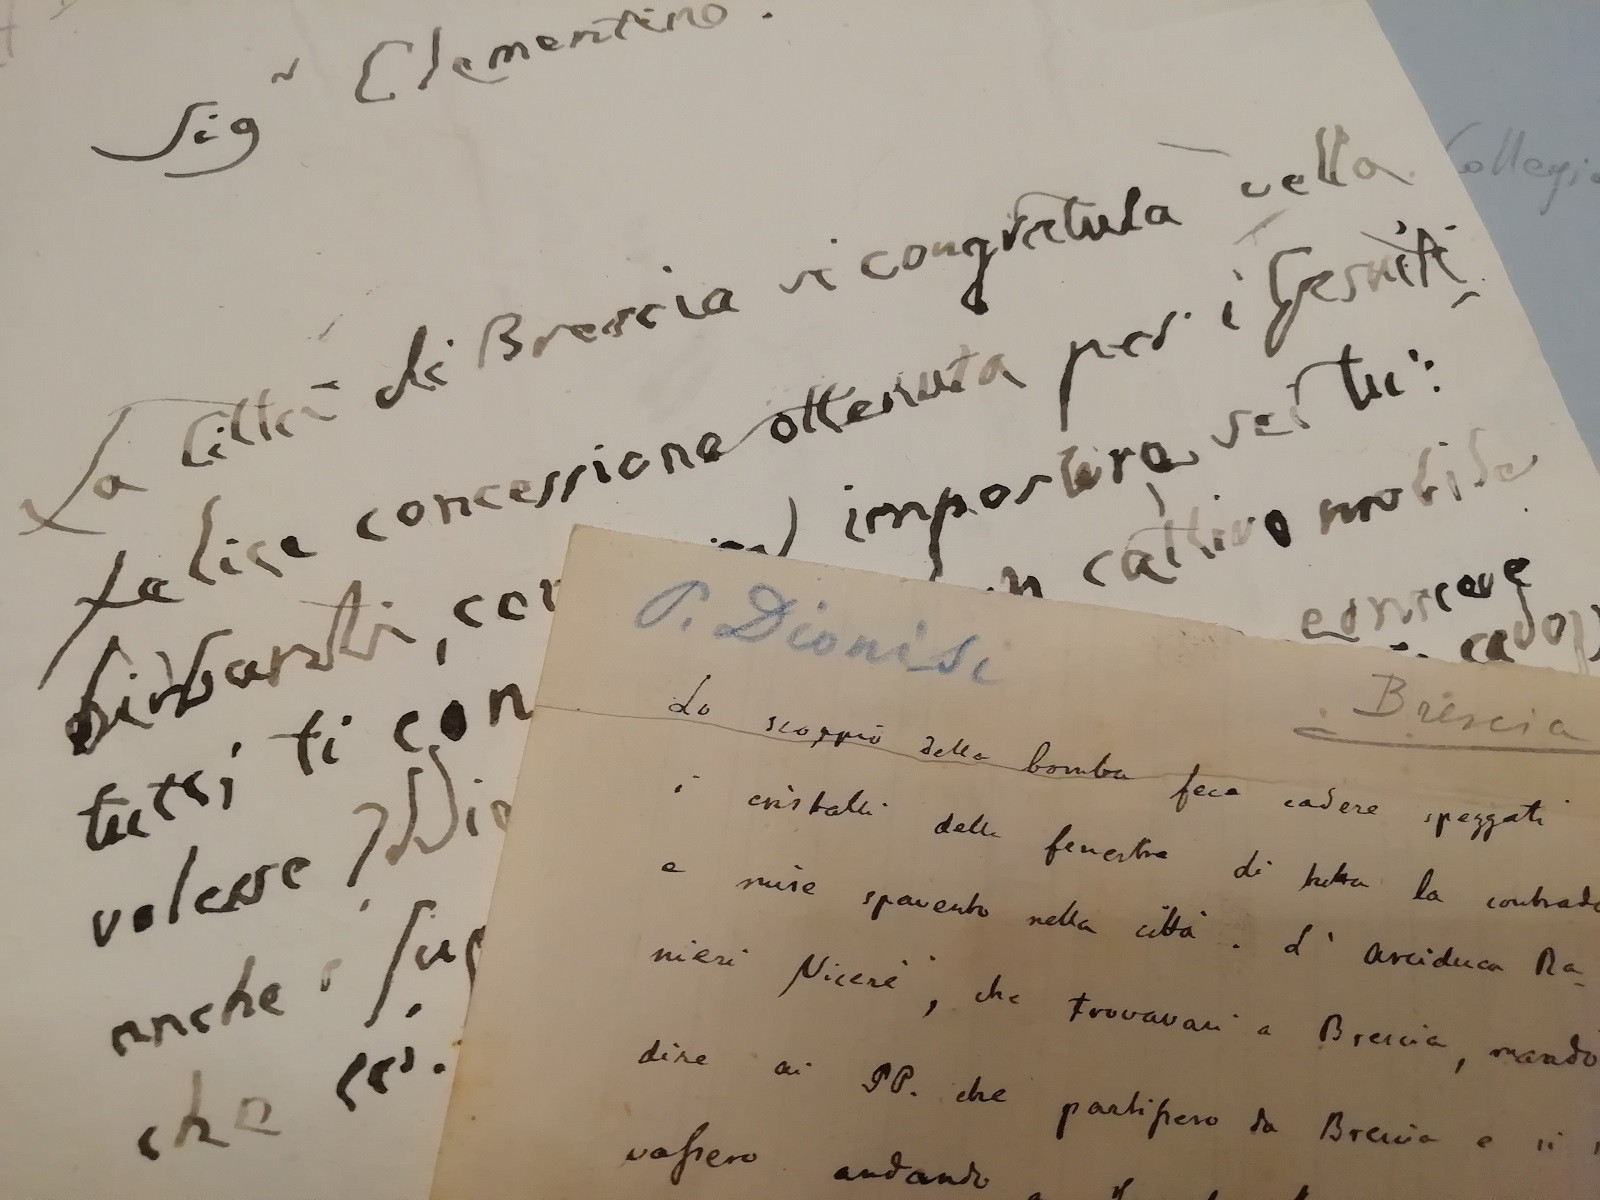 Sig.r Clementino.
La Città di Brescia vi congratula della
felice concessione ottenuta per i Gesuiti
birbanti, con impostura sei tu:
tutti, ti con un cattivo mobile
volesse
anche i
che
Collegio
P. Dionisi
Brescia
Lo scoppio della bomba fece cadere spezzati
i cristalli delle fenestre di tutta la contrada
e mise spavento nella città. L'Arciduca Ra-
nieri Vicerè, che trovavasi a Brescia, mandò
dire ai PP. che partissero da Brescia e si
vassero andando